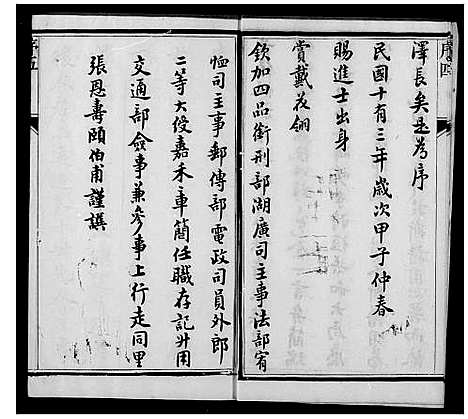 序四
澤長矣是為序
民國十有三年歲次甲子仲春
賜進士出身
賞戴花翎
欽加四品銜刑部湖廣司主事法部宥
恤司主事郵傳部電政司員外郎
二等大綬嘉禾章簡任職存記升用
交通部僉事兼參事上行走同里
張恩壽頤伯甫謹譔
序五